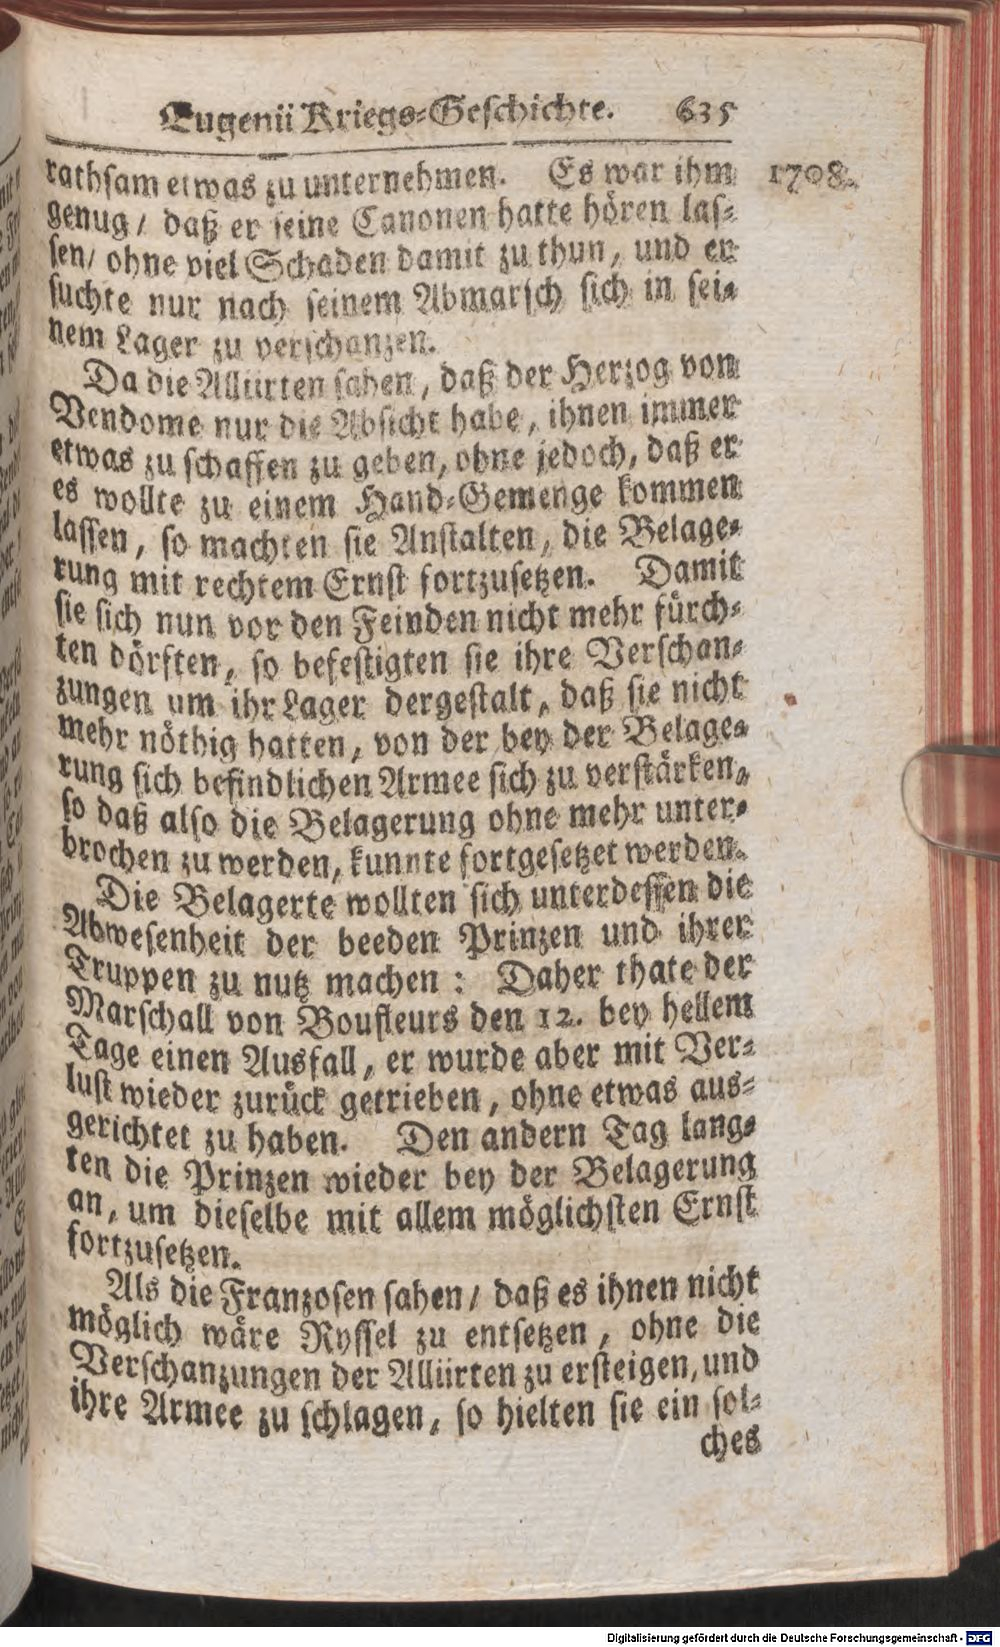 Eugenii Kriegs-Geschichte. 635
rathsam etwas zu unternehmen. Es war ihm 1708.
genug/ daß er seine Canonen hatte hören las-
sen/ ohne viel Schaden damit zu thun, und er
suchte nur nach seinem Abmarsch sich in sei-
nem Lager zu verschanzen.
Da die Alliirten sahen, daß der Herzog von
Vendome nur die Absicht habe, ihnen immer
etwas zu schaffen zu geben, ohne jedoch, daß er
es wollte zu einem Hand-Gemenge kommen
lassen, so machten sie Anstalten, die Belage-
rung mit rechtem Ernst fortzusetzen. Damit
sie sich nun vor den Feinden nicht mehr fürch-
ten dörften, so befestigten sie ihre Verschan-
zungen um ihr Lager dergestalt, daß sie nicht
mehr nöthig hatten, von der bey der Belage-
rung sich befindlichen Armee sich zu verstärken,
so daß also die Belagerung ohne mehr unter-
brochen zu werden, kunnte fortgesetzet werden.
Die Belagerte wollten sich unterdessen die
Abwesenheit der beeden Prinzen und ihrer
Truppen zu nutz machen: Daher thate der
Marschall von Boufleurs den 12. bey hellem
Tage einen Ausfall, er wurde aber mit Ver-
lust wieder zurück getrieben, ohne etwas aus-
gerichtet zu haben. Den andern Tag lang-
ten die Prinzen wieder bey der Belagerung
an, um dieselbe mit allem möglichsten Ernst
fortzusetzen.
Als die Franzosen sahen/ daß es ihnen nicht
möglich wäre Ryssel zu entsetzen, ohne die
Verschanzungen der Alliirten zu ersteigen, und
ihre Armee zu schlagen, so hielten sie ein sol-
ches
Digitalisierung gefördert durch die Deutsche Forschungsgemeinschaft - DFG